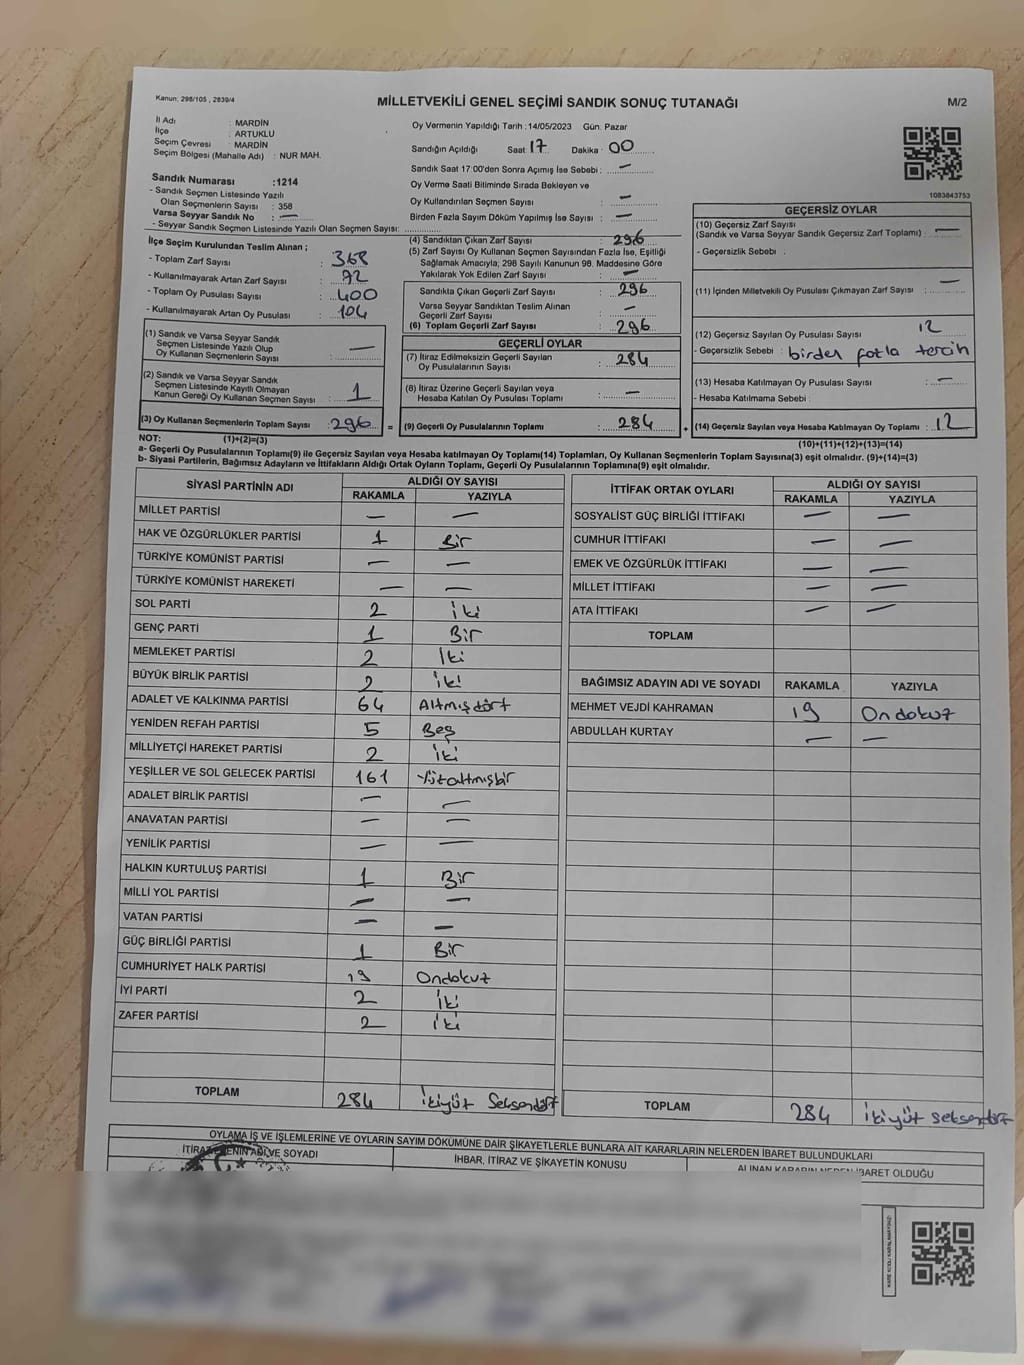 Kanun: 298/105 , 2839/4
MİLLETVEKİLİ GENEL SEÇİMİ SANDIK SONUÇ TUTANAĞI
M/2
İl Adı : MARDİN
İlçe : ARTUKLU
Seçim Çevresi : MARDİN
Seçim Bölgesi (Mahalle Adı) : NUR MAH.
Sandık Numarası :1214
- Sandık Seçmen Listesinde Yazılı
Olan Seçmenlerin Sayısı : 358
Varsa Seyyar Sandık No : —
- Seyyar Sandık Seçmen Listesinde Yazılı Olan Seçmen Sayısı:
Oy Vermenin Yapıldığı Tarih : 14/05/2023 Gün: Pazar
Sandığın Açıldığı Saat 17 Dakika : 00
Sandık Saat 17:00'den Sonra Açımış İse Sebebi : —
Oy Verme Saati Bitiminde Sırada Bekleyen ve
Oy Kullandırılan Seçmen Sayısı : —
Birden Fazla Sayım Döküm Yapılmış İse Sayısı : —
1083843753
İlçe Seçim Kurulundan Teslim Alınan ;
- Toplam Zarf Sayısı : 368
- Kullanılmayarak Artan Zarf Sayısı : 72
- Toplam Oy Pusulası Sayısı : 400
- Kullanılmayarak Artan Oy Pusulası : 104
(1) Sandık ve Varsa Seyyar Sandık
Seçmen Listesinde Yazılı Olup
Oy Kullanan Seçmenlerin Sayısı : —
(2) Sandık ve Varsa Seyyar Sandık
Seçmen Listesinde Kayıtlı Olmayan
Kanun Gereği Oy Kullanan Seçmen Sayısı : 1
(3) Oy Kullanan Seçmenlerin Toplam Sayısı : 296
(1)+(2)=(3)
(4) Sandıktan Çıkan Zarf Sayısı : 296
(5) Zarf Sayısı Oy Kullanan Seçmen Sayısından Fazla İse, Eşitliği
Sağlamak Amacıyla; 298 Sayılı Kanunun 98. Maddesine Göre
Yakılarak Yok Edilen Zarf Sayısı : —
Sandıkta Çıkan Geçerli Zarf Sayısı : 296
Varsa Seyyar Sandıktan Teslim Alınan
Geçerli Zarf Sayısı : —
(6) Toplam Geçerli Zarf Sayısı : 296
GEÇERLİ OYLAR
(7) İtiraz Edilmeksizin Geçerli Sayılan
Oy Pusulalarının Sayısı : 284
(8) İtiraz Üzerine Geçerli Sayılan veya
Hesaba Katılan Oy Pusulası Toplamı : —
= (9) Geçerli Oy Pusulalarının Toplamı : 284
GEÇERSİZ OYLAR
(10) Geçersiz Zarf Sayısı
(Sandık ve Varsa Seyyar Sandık Geçersiz Zarf Toplamı) : —
- Geçersizlik Sebebi :
(11) İçinden Milletvekili Oy Pusulası Çıkmayan Zarf Sayısı : —
(12) Geçersiz Sayılan Oy Pusulası Sayısı : 12
- Geçersizlik Sebebi : birden fazla tercih
(13) Hesaba Katılmayan Oy Pusulası Sayısı : —
- Hesaba Katılmama Sebebi :
+ (14) Geçersiz Sayılan veya Hesaba Katılmayan Oy Toplamı : 12
(10)+(11)+(12)+(13)=(14)
NOT:
a- Geçerli Oy Pusulalarının Toplamı(9) ile Geçersiz Sayılan veya Hesaba katılmayan Oy Toplamı(14) Toplamları, Oy Kullanan Seçmenlerin Toplam Sayısına(3) eşit olmalıdır. (9)+(14)=(3)
b- Siyasi Partilerin, Bağımsız Adayların ve İttifakların Aldığı Ortak Oyların Toplamı, Geçerli Oy Pusulalarının Toplamına(9) eşit olmalıdır.
SİYASİ PARTİNİN ADI ALDIĞI OY SAYISI
RAKAMLA YAZIYLA
MİLLET PARTİSİ — —
HAK VE ÖZGÜRLÜKLER PARTİSİ 1 Bir
TÜRKİYE KOMÜNİST PARTİSİ — —
TÜRKİYE KOMÜNİST HAREKETİ — —
SOL PARTİ 2 İki
GENÇ PARTİ 1 Bir
MEMLEKET PARTİSİ 2 İki
BÜYÜK BİRLİK PARTİSİ 2 İki
ADALET VE KALKINMA PARTİSİ 64 Altmışdört
YENİDEN REFAH PARTİSİ 5 Beş
MİLLİYETÇİ HAREKET PARTİSİ 2 İki
YEŞİLLER VE SOL GELECEK PARTİSİ 161 Yüzaltmışbir
ADALET BİRLİK PARTİSİ — —
ANAVATAN PARTİSİ — —
YENİLİK PARTİSİ — —
HALKIN KURTULUŞ PARTİSİ 1 Bir
MİLLİ YOL PARTİSİ — —
VATAN PARTİSİ — —
GÜÇ BİRLİĞİ PARTİSİ 1 Bir
CUMHURİYET HALK PARTİSİ 19 Ondokuz
İYİ PARTİ 2 İki
ZAFER PARTİSİ 2 İki
TOPLAM 284 İkiyüz Seksendört
İTTİFAK ORTAK OYLARI ALDIĞI OY SAYISI
RAKAMLA YAZIYLA
SOSYALİST GÜÇ BİRLİĞİ İTTİFAKI — —
CUMHUR İTTİFAKI — —
EMEK VE ÖZGÜRLÜK İTTİFAKI — —
MİLLET İTTİFAKI — —
ATA İTTİFAKI — —
TOPLAM
BAĞIMSIZ ADAYIN ADI VE SOYADI RAKAMLA YAZIYLA
MEHMET VEJDİ KAHRAMAN 19 Ondokuz
ABDULLAH KURTAY — —
TOPLAM 284 İkiyüz seksendört
OYLAMA İŞ VE İŞLEMLERİNE VE OYLARIN SAYIM DÖKÜMÜNE DAİR ŞİKAYETLERLE BUNLARA AİT KARARLARIN NELERDEN İBARET BULUNDUKLARI
İTİRAZ EDENİN ADI VE SOYADI
İHBAR, İTİRAZ VE ŞİKAYETİN KONUSU
ALINAN KARARIN NEDEN İBARET OLDUĞU